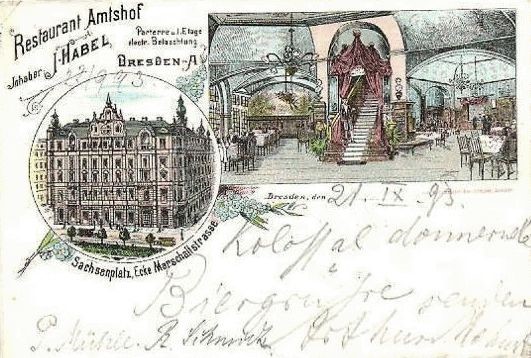 Restaurant Amtshof
Inhaber J. HABEL,
Parterre u. I. Etage
electr. Beleuchtung
DRESDEN-A
Sachsenplatz, Ecke Marschallstrasse
Dresden, den 21. IX. 93.
Kolossal donnernde
Biergrüsse senden
P. Mühle. R. Schmidt Arthur